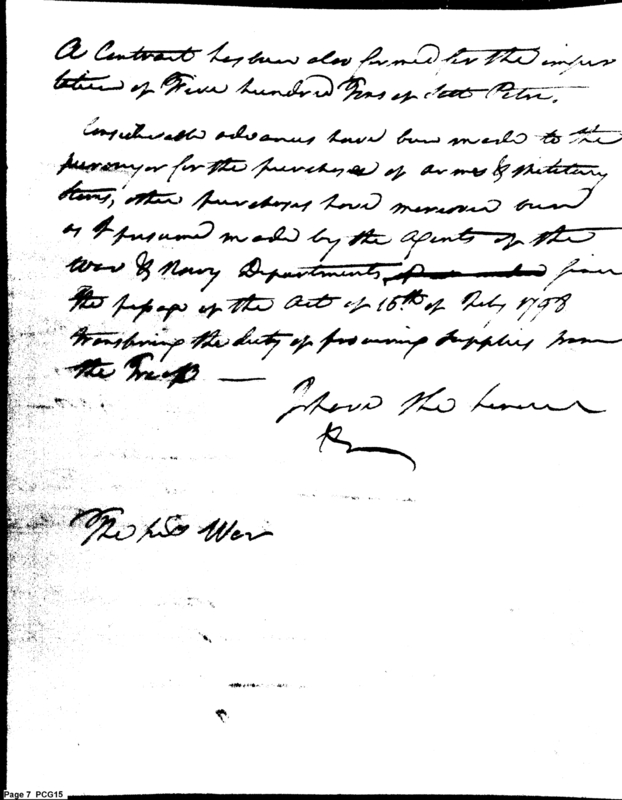 A Contract has been also formed for the impor
tation of Five hundred Tons of Salt Petre.
Considerable advances have been made to the
purveyor for the purchase of arms & Military
Stores, other purchases have moreover been
as I presume made by the Agents of the
War & Navy Departments, since
the passage of the Act of 16th of July 1798
transferring the duty of procuring supplies from
the Treasy —
I have the honour
The Secy War
Page 7 PCG15